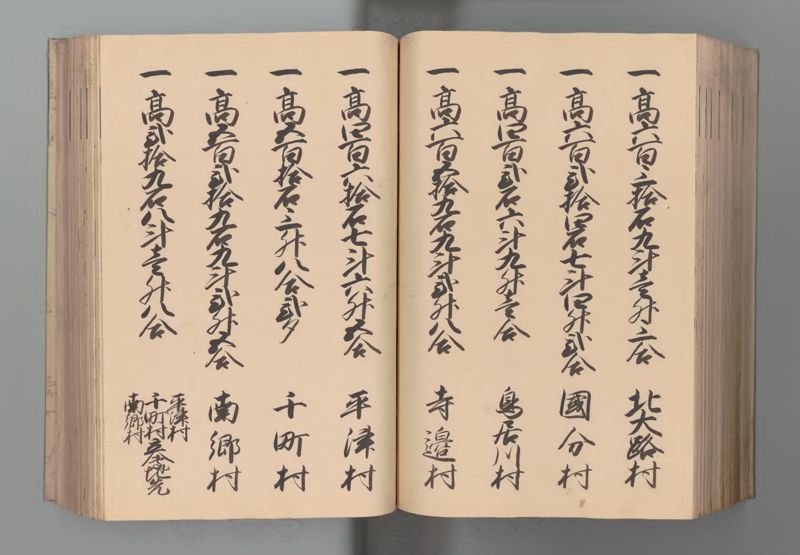 一高六百三拾石九斗壱升三合 北大路村
一高六百弐拾四石七斗四升弐合 國分村
一高四百弐石六斗九升壱合 鳥居川村
一高六百五拾九石九斗弐升八合 寺邉村
一高四百六拾石七斗六升五合 平津村
一高五百拾石三升八合弐夕 千町村
一高五百弐拾九石九斗弐升五合 南郷村
一高弐拾九石八斗壱升八合
平津村
千町村
南郷村